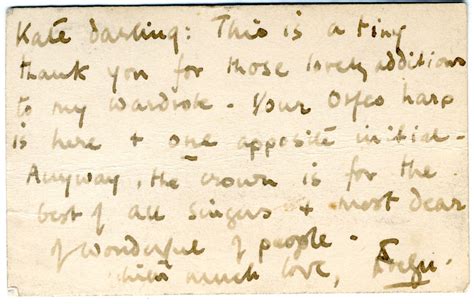 Kate darling: This is a tiny
thank you for those lovely additions
to my wardrobe - Your Orfeo harp
is here + one opposite initial -
Anyway, the crown is for the
best of all singers + most dear
of wonderful of people -
much love,